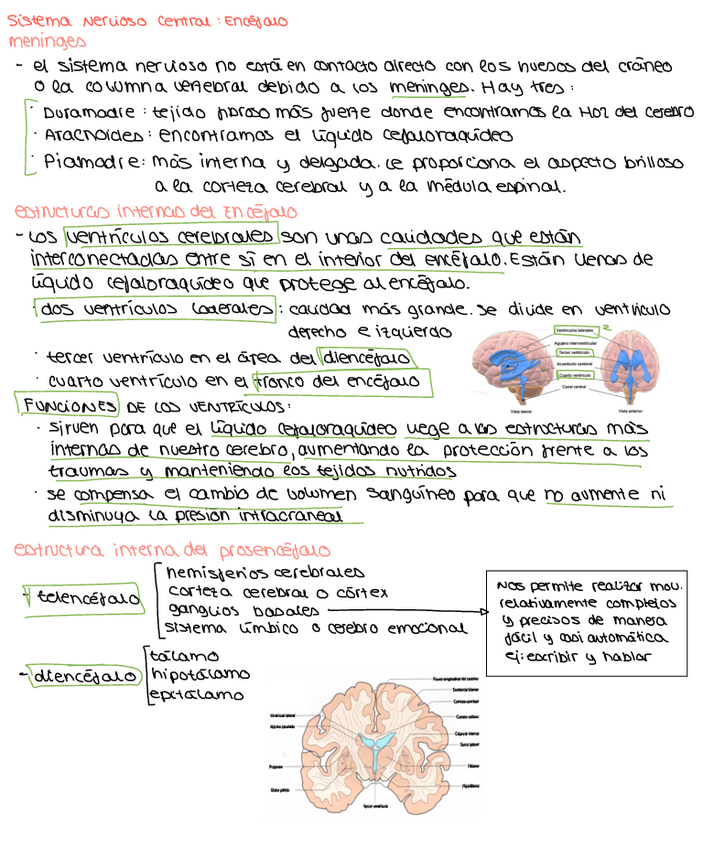 Sistema Nervioso Central: Encéfalo
meninges
- el sistema nervioso no está en contacto directo con los huesos del cráneo
o la columna vertebral debido a las meninges. Hay tres:
· Duramadre: tejido fibroso más fuerte donde encontramos la Hoz del cerebro
· Aracnoides: encontramos el líquido cefaloraquídeo
· Piamadre: más interna y delgada. Le proporciona el aspecto brilloso
a la corteza cerebral y a la médula espinal.
estructuras internas del Encéfalo
- Los ventrículos cerebrales son unas cavidades que están
interconectadas entre sí en el interior del encéfalo. Están llenas de
líquido cefaloraquídeo que protege al encéfalo.
· dos ventrículos laterales: cavidad más grande. Se divide en ventrículo
derecho e izquierdo
· tercer ventrículo en el área del diencéfalo
· cuarto ventrículo en el tronco del encéfalo
Ventrículos laterales 2
Agujero interventricular
Tercer ventrículo
Acueducto cerebral
Cuarto ventrículo
Canal central
Vista lateral
Vista anterior
FUNCIONES DE LOS VENTRÍCULOS:
· sirven para que el líquido cefaloraquídeo llege a las estructuras más
internas de nuestro cerebro, aumentando la protección frente a los
traumas y manteniendo los tejidos nutridos
· se compensa el cambio de volumen sanguíneo para que no aumente ni
disminuya la presión intracraneal
estructura interna del prosencéfalo
- telencéfalo
hemisferios cerebrales
corteza cerebral o córtex
ganglios basales
sistema límbico o cerebro emocional
Nos permite realizar mov.
relativamente complejos
y precisos de manera
fácil y casi automática
ej: escribir y hablar
- diencéfalo
tálamo
hipotálamo
epitálamo
Ventrículo lateral
Núcleo caudado
Putamen
Globo pálido
Tercer ventrículo
Sustancia blanca
Cuerpo calloso
Cápsula interna
Surco lateral
Tálamo
Hipotálamo